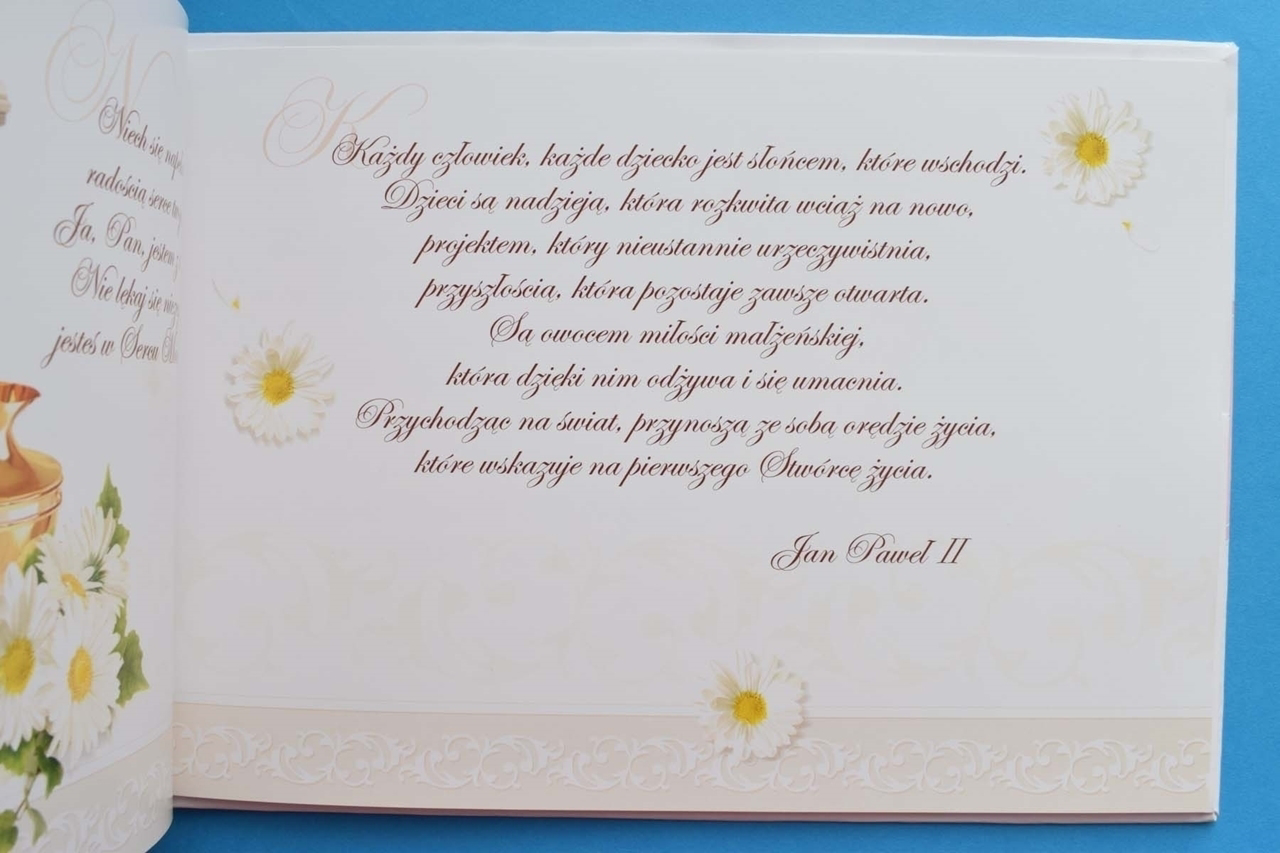 Niech się
radością serce
Ja, Pan, jestem
Nie lękaj się
jesteś w Sercu
Każdy człowiek, każde dziecko jest słońcem, które wschodzi.
Dzieci są nadzieją, która rozkwita wciąż na nowo,
projektem, który nieustannie urzeczywistnia,
przyszłością, która pozostaje zawsze otwarta.
Są owocem miłości małżeńskiej,
która dzięki nim odżywa i się umacnia.
Przychodząc na świat, przynoszą ze sobą orędzie życia,
które wskazuje na pierwszego Stwórcę życia.
Jan Paweł II